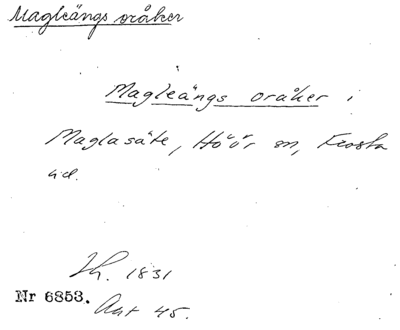 Magleängs oråker
Magleängs oråker i
Maglasäte, Höör sn, Frosta
hd.
Sk. 1831
Nr 6853.
Akt 45.